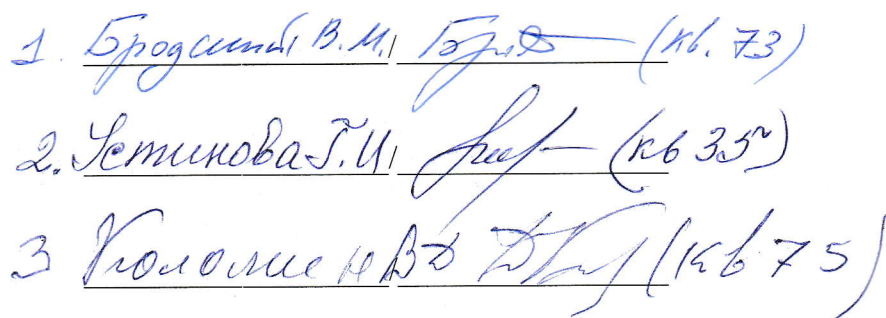 1. Бродский В.М. (кв. 73)
2. Устинова Г.И. (кв 35)
3 ВД (кв 75)